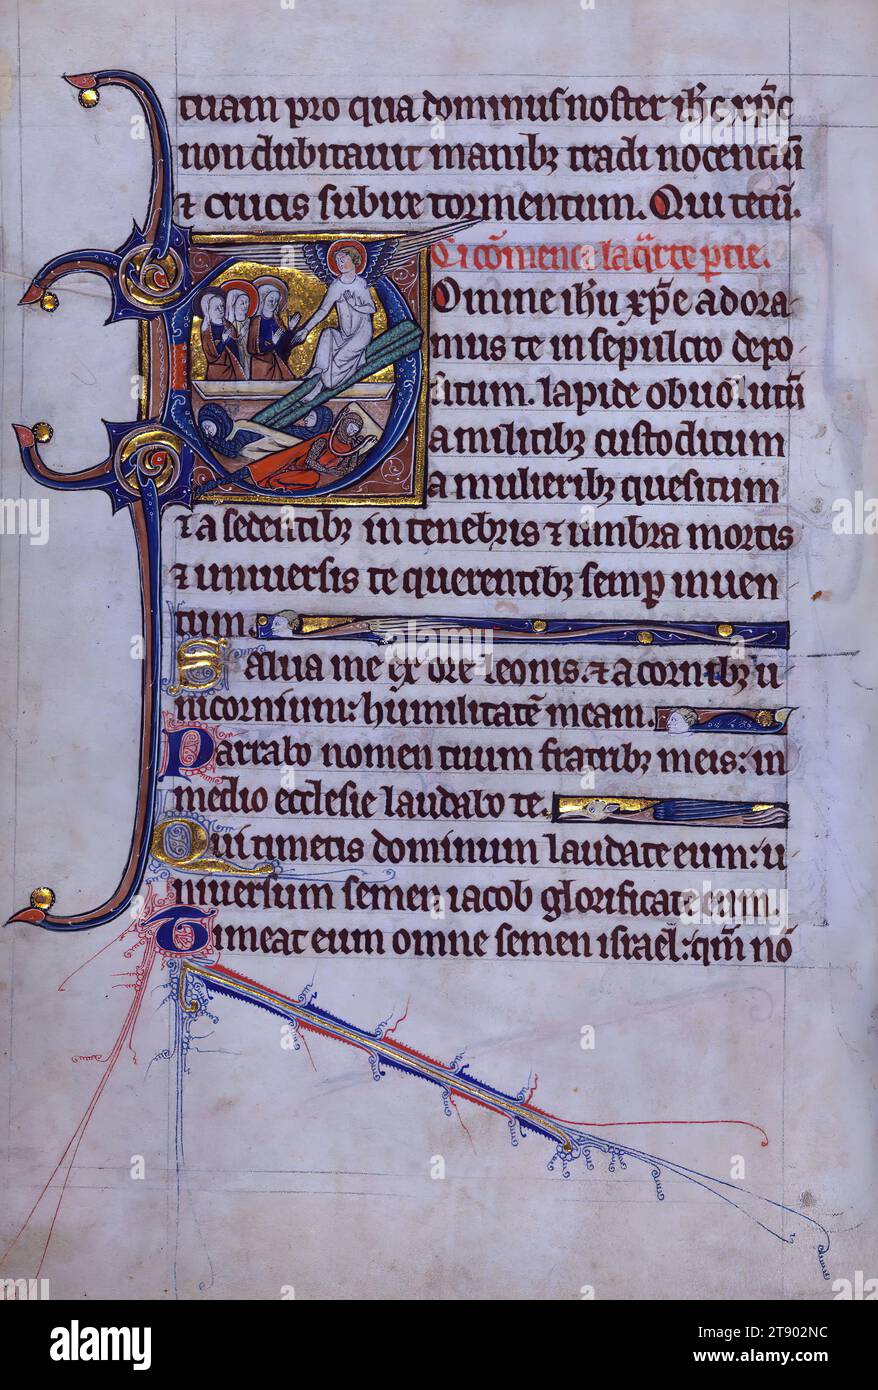 tuam pro qua dominus noster ih̄c xp̄c
non dubitauit manibꝫ tradi nocentiū
⁊ crucis subire tormentum. Qui tecū.
Domine ihu xp̄e adora
mus te in sepulcro depo
situm. lapide obuolutū
a militibꝫ custoditum
a mulieribꝫ quesitum
⁊ a sedentibꝫ in tenebris ⁊ umbra mortis
⁊ uniuersis te querentibꝫ semp inuen
tum.
Salua me ex ore leonis. ⁊ a cornibꝫ u
nicornium: humilitatē meam.
Narrabo nomen tuum fratribꝫ meis: in
medio ecclesie laudabo te.
Qui timetis dominum laudate eum: u
niuersum semen iacob glorificate eum.
Timeat eum omne semen israel: qm̄ nō
alamy
a
alamy
Image ID: 2T902NC
www.alamy.com